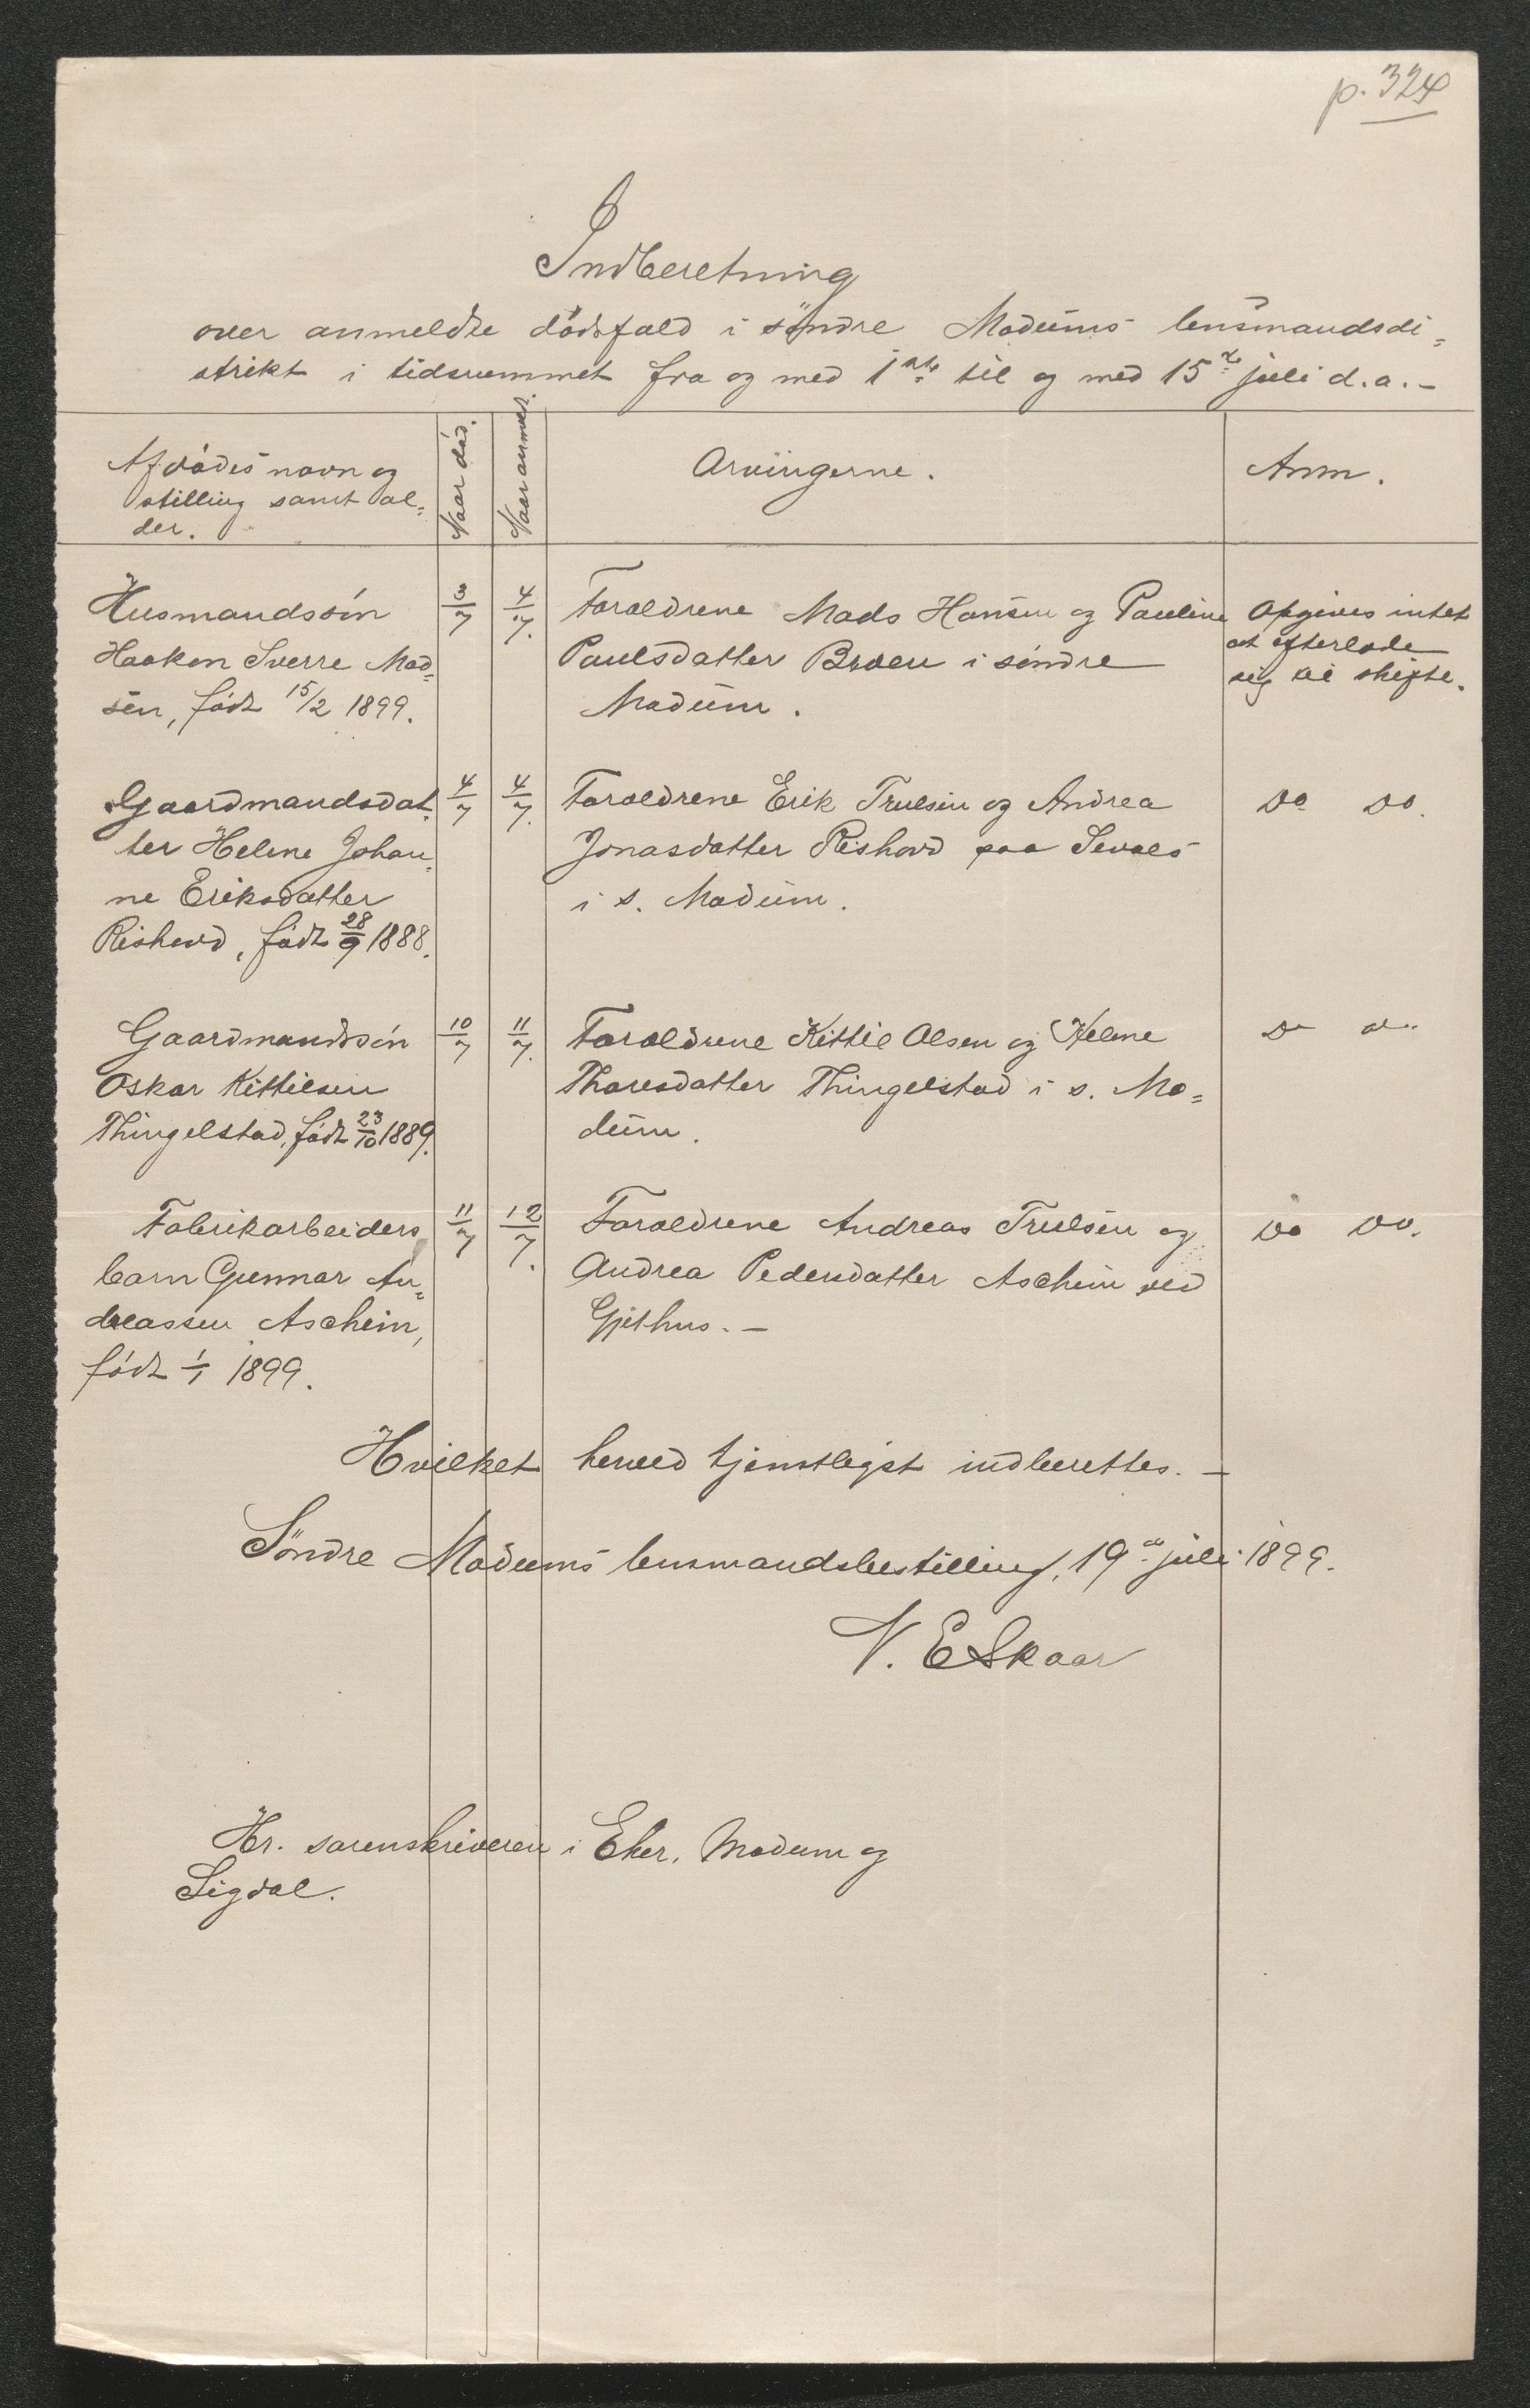 p. 324
Indberetning
over anmeldte dödsfald i söndre Modums lensmandsdi=
strikt i tidsrummet fra og med 1ste til og med 15de juli d.a. -
Afdödes navn og
stilling samt al=
der.
Naar död.
Naar anmeldt.
Arvingerne.
Anm.
Husmandssön
Haakon Sverre Mad=
sen, födt 15/2 1899.
3/7
4/7.
Forældrene Mads Hansen og Pauline
Paulsdatter Braen i söndre
Modum.
Opgives intet
at efterlade
sig til skifte.
Gaardmandsdat=
ter Helene Johan=
ne Eriksdatter
Rishovd, födt 28/9 1888.
4/7
4/7.
Forældrene Erik Trulsen og Andrea
Jonasdatter Rishovd paa
i s. Modum.
Do Do.
Gaardmandssön
Oskar Kittilsen
Thingelstad, födt 23/10 1889.
10/7
11/7.
Forældrene Kittil Olsen og Helene
Thoresdatter Thingelstad i s. Mo=
dum.
Do Do.
Fabrikarbeiders
barn Gunnar An=
dreassen Aschim,
födt 1/1 1899.
11/7
12/7.
Forældrene Andreas Trulsen og
Andrea Pedersdatter Aschim ved
Gjethus. -
Do Do.
Hvilket herved tjenstligst indberettes. -
Söndre Modums lensmandsbestilling, 19de juli 1899.
N. E Skaar
Hr. sorenskriveren i Eker, Modum og
Sigdal.